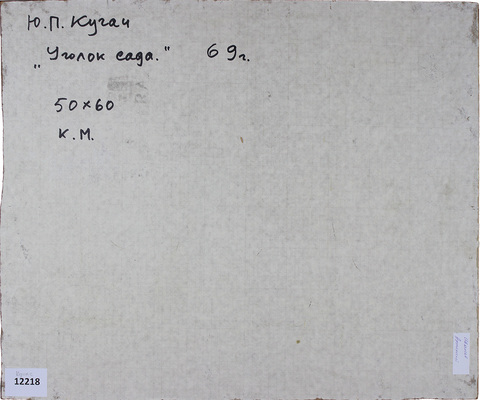 Ю.П. Кугач
„Уголок сада." 69г.
50×60
К.М.
12218